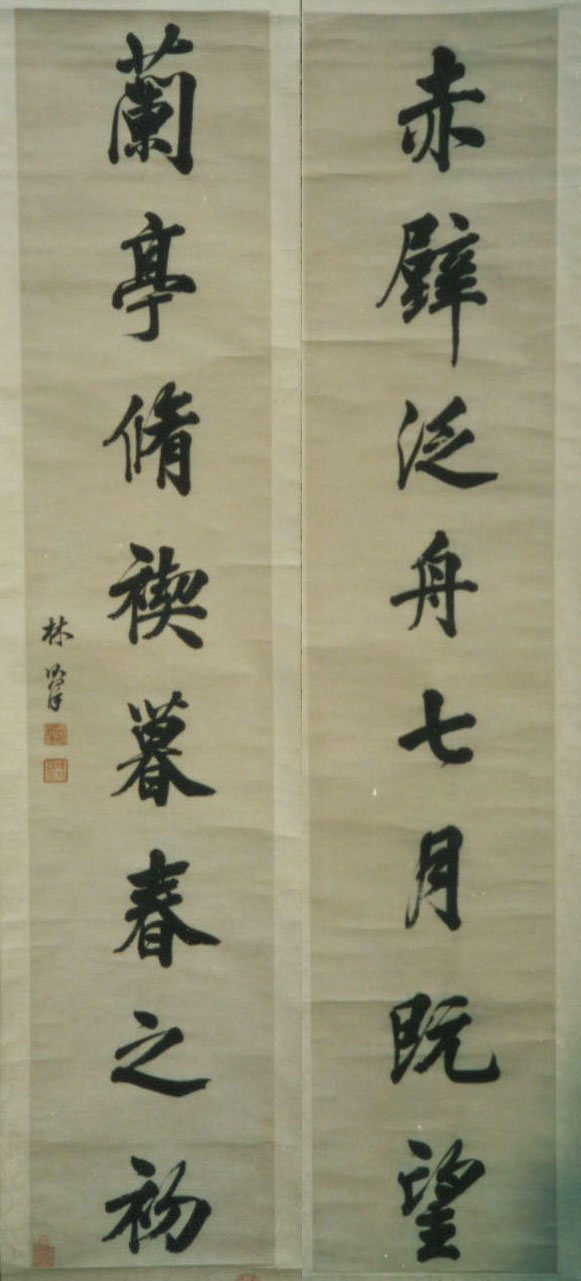 赤壁泛舟七月既望
蘭亭脩禊暮春之初
林